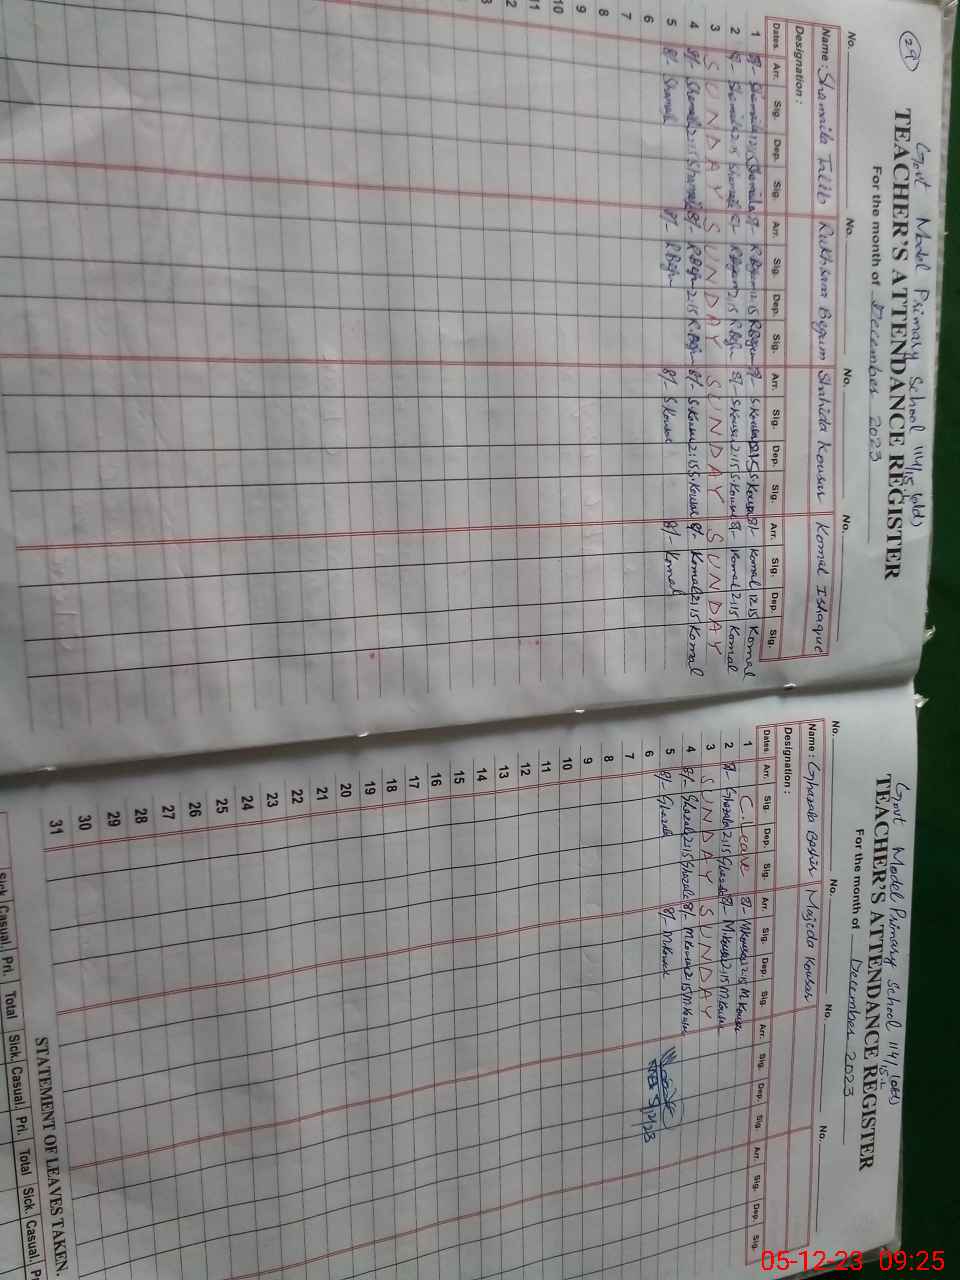 29
Govt Model Primary School 114/15-L (old)
TEACHER'S ATTENDANCE REGISTER
For the month of December 2023
No. No. No. No.
Name: Shamaila Talib Rukhsana Begum Shahida Kousar Komal Ishaque
Designation:
Dates Arr. Sig. Dep. Sig. Arr. Sig. Dep. Sig. Arr. Sig. Dep. Sig. Arr. Sig. Dep. Sig.
1 8/- Shamaila 12:15 Shamaila 8/- R.Begum 12:15 R.Begum 8/- S.Kousar 12:15 S.Kousar 8/- Komal 12:15 Komal
2 8/- Shamaila 2:15 Shamaila 8/- R.Begum 2:15 R.Begum 8/- S.Kousar 2:15 S.Kousar 8/- Komal 2:15 Komal
3 SUNDAY SUNDAY SUNDAY SUNDAY
4 8/- Shamaila 2:15 Shamaila 8/- R.Begum 2:15 R.Begum 8/- S.Kousar 2:15 S.Kousar 8/- Komal 2:15 Komal
5 8/- Shamaila 8/- R.Begum 8/- S.Kousar 8/- Komal
6
7
8
9
10
11
12
Govt Model Primary School 114/15-L (old)
TEACHER'S ATTENDANCE REGISTER
For the month of December 2023
No. No. No. No.
Name: Ghazala Bashir Majida Kousar
Designation:
Dates Arr. Sig. Dep. Sig. Arr. Sig. Dep. Sig. Arr. Sig. Dep. Sig. Arr. Sig. Dep. Sig.
1 C.Leave 8/- M.Kousar 12:15 M.Kousar
2 8/- Ghazala 2:15 Ghazala 8/- M.Kousar 2:15 M.Kousar
3 SUNDAY SUNDAY
4 8/- Ghazala 2:15 Ghazala 8/- M.Kousar 2:15 M.Kousar
5 8/- Ghazala 8/- M.Kousar
6 5/12/23
7
8
9
10
11
12
13
14
15
16
17
18
19
20
21
22
23
24
25
26
27
28
29
30
31
STATEMENT OF LEAVES TAKEN.
Sick Casual. Pri. Total Sick. Casual. Pri. Total Sick. Casual.
05-12-23 09:25